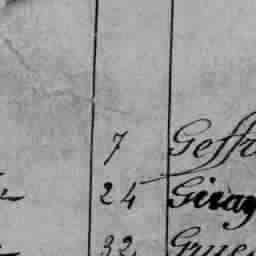 7 Geffr
24 Giray
32 Grue